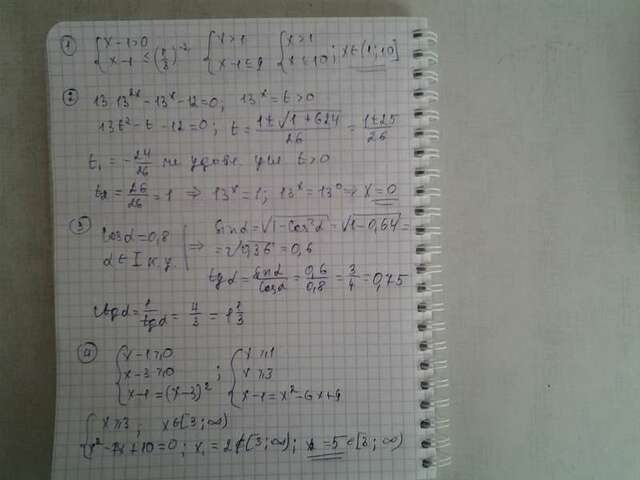 1 { x-1>0 { x>1 { x>1
x-1≤(1/3)^-2 x-1≤9 x≤10; x∈(1;10]
2 13·13^2x-13^x-12=0; 13^x=t>0
13t²-t-12=0; t=1±√1+624/26=1±25/26
t₁=-24/26 не удовл. усл t>0
t₂=26/26=1 ⇒ 13^x=1; 13^x=13^0 ⇒ x=0
3 cosα=0,8 ⇒ sinα=√1-cos²α=√1-0,64=
α∈I к.у. =√0,36=0,6
tgα=sinα/cosα=0,6/0,8=3/4=0,75
ctgα=1/tgα=4/3=1 1/3
4 { x-1≥0 ; { x≥1
x-3≥0 x≥3
x-1=(x-3)² x-1=x²-6x+9
{ x≥3; x∈[3;∞)
x²-7x+10=0; x₁=2∉[3;∞); x=5∈[3;∞)